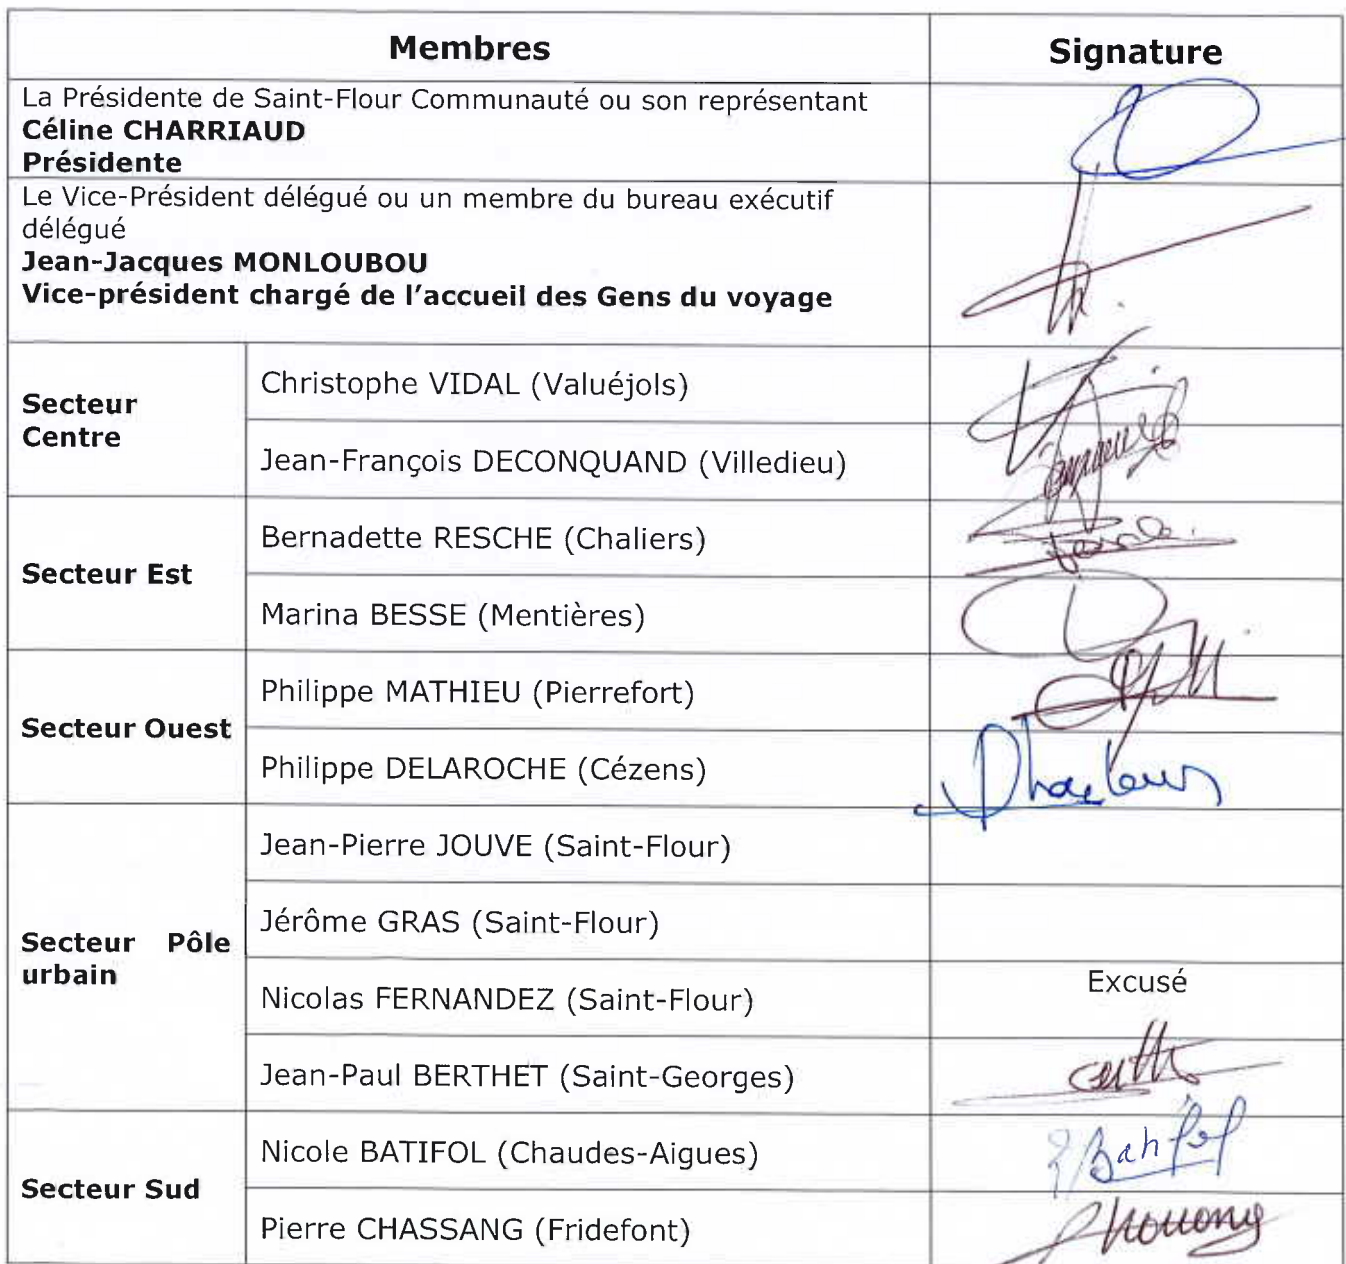 Membres
Signature
La Présidente de Saint-Flour Communauté ou son représentant
Céline CHARRIAUD
Présidente
Le Vice-Président délégué ou un membre du bureau exécutif
délégué
Jean-Jacques MONLOUBOU
Vice-président chargé de l'accueil des Gens du voyage
Secteur
Centre
Christophe VIDAL (Valuéjols)
Jean-François DECONQUAND (Villedieu)
Secteur Est
Bernadette RESCHE (Chaliers)
Marina BESSE (Mentières)
Secteur Ouest
Philippe MATHIEU (Pierrefort)
Philippe DELAROCHE (Cézens)
Secteur Pôle
urbain
Jean-Pierre JOUVE (Saint-Flour)
Jérôme GRAS (Saint-Flour)
Nicolas FERNANDEZ (Saint-Flour)
Excusé
Jean-Paul BERTHET (Saint-Georges)
Secteur Sud
Nicole BATIFOL (Chaudes-Aigues)
Batifol
Pierre CHASSANG (Fridefont)